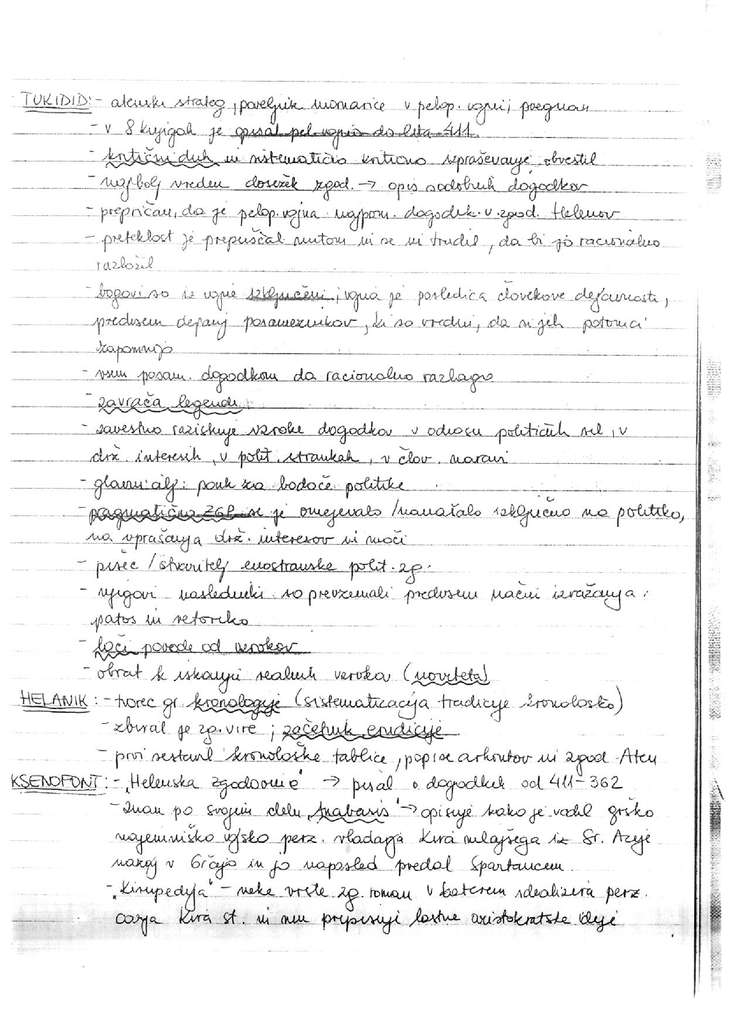 TUKIDID: - atenski strateg, poveljnik mornarice v pelop. vojni; pregnan
- v 8 knjigah je opisal pel. vojno do leta 411.
- kritični duh in sistematično kritično spraševanje obvestil
- najbolj vreden dosežek zgod. → opis sodobnih dogodkov
- prepričan, da je pelop. vojna najpom. dogodek v zgod. Helenov
- preteklost je prepuščal mitom in se ni trudil, da bi jo racionalno
razložil
- bogovi so iz vojne izključeni; vojna je posledica človekove dejavnosti,
predvsem dejanj posameznikov, ki so vredni, da si jih potomci
zapomnijo
- vsem posam. dogodkom da racionalno razlago
- zavrača legende
- zavestno raziskuje vzroke dogodkov v odnosu političnih sil, v
drž. interesih, v polit. strankah, v člov. naravi
- glavni cilj: pouk za bodoče politike
- pragmatično ZGP se je omejevalo/nanašalo izključno na politiko,
na vprašanja drž. interesov in moči
- pisec/stvaritelj enostranske polit. zg.
- njegovi nasledniki so prevzemali predvsem način izražanja:
patos in retoriko
- loči povode od vzrokov
- obrat k iskanju realnih vzrokov (novosteta)
HELANIK: - tvorec gr. kronologije (sistematizacija tradicije kronološko)
- zbiral je zg. vire; začetnik erudicije
- prvi sestavil kronološke tablice, popise arhontov in zgod. Aten
KSENOFONT: - "Helenska zgodovina" → pisal o dogodkih od 411-362
- znan po svojem delu "Anabasis" → opisuje kako je vodil grško
najemniško vojsko perz. vladarja Kira mlajšega iz Sr. Azije
nazaj v Grčijo in jo naposled predal Špartancem
- "Kirupedija" - neke vrste zg. roman v katerem idealizira perz.
carja Kira st. in mu pripisuje lastne aristokratske ideje